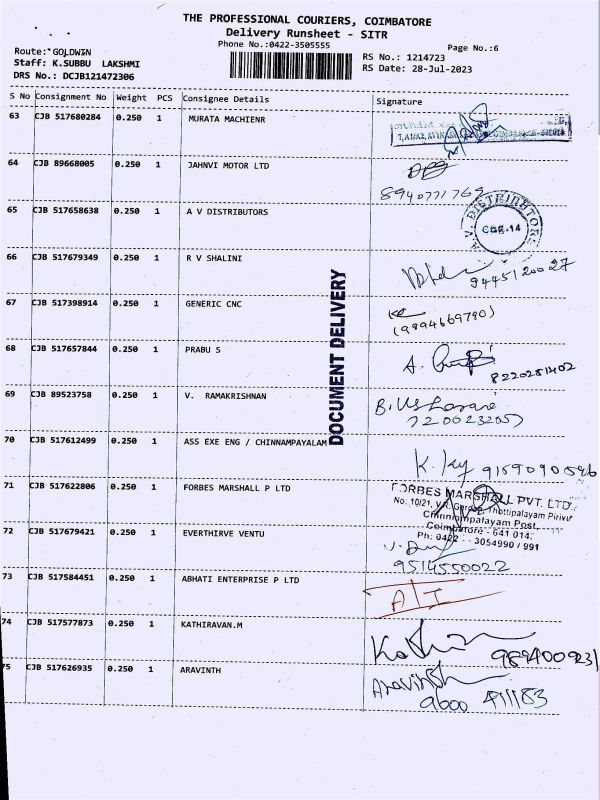 THE PROFESSIONAL COURIERS, COIMBATORE
Delivery Runsheet - SITR
Phone No.:0422-3505555
Page No.:6
Route: GOLDWIN
Staff: K.SUBBU LAKSHMI
DRS No.: DCJB121472306
RS No.: 1214723
RS Date: 28-Jul-2023
S No Consignment No Weight PCS Consignee Details Signature
63 CJB 517680284 0.250 1 MURATA MACHIENR
64 CJB 89668005 0.250 1 JAHNVI MOTOR LTD
8940771769
65 CJB 517658638 0.250 1 A V DISTRIBUTORS
A.V. DISTRIBUTORS
CBE-14
66 CJB 517679349 0.250 1 R V SHALINI
9445120027
67 CJB 517398914 0.250 1 GENERIC CNC
(9994669790)
68 CJB 517657844 0.250 1 PRABU S
8220281402
69 CJB 89523758 0.250 1 V. RAMAKRISHNAN
70 CJB 517612499 0.250 1 ASS EXE ENG / CHINNAMPAYALAM
9159090596
DOCUMENT DELIVERY
71 CJB 517622806 0.250 1 FORBES MARSHALL P LTD
FORBES MARSHALL PVT. LTD.
No: 10/21, V.R. Garden, Thottipalayam Pirivu
Chinniampalayam Post,
Coimbatore - 641 014.
Ph: 0422 - 3054990 / 991
72 CJB 517679421 0.250 1 EVERTHIRVE VENTU
9514550022
73 CJB 517584451 0.250 1 ABHATI ENTERPRISE P LTD
74 CJB 517577873 0.250 1 KATHIRAVAN.M
9894009231
75 CJB 517626935 0.250 1 ARAVINTH
Aravinth
9600 411183